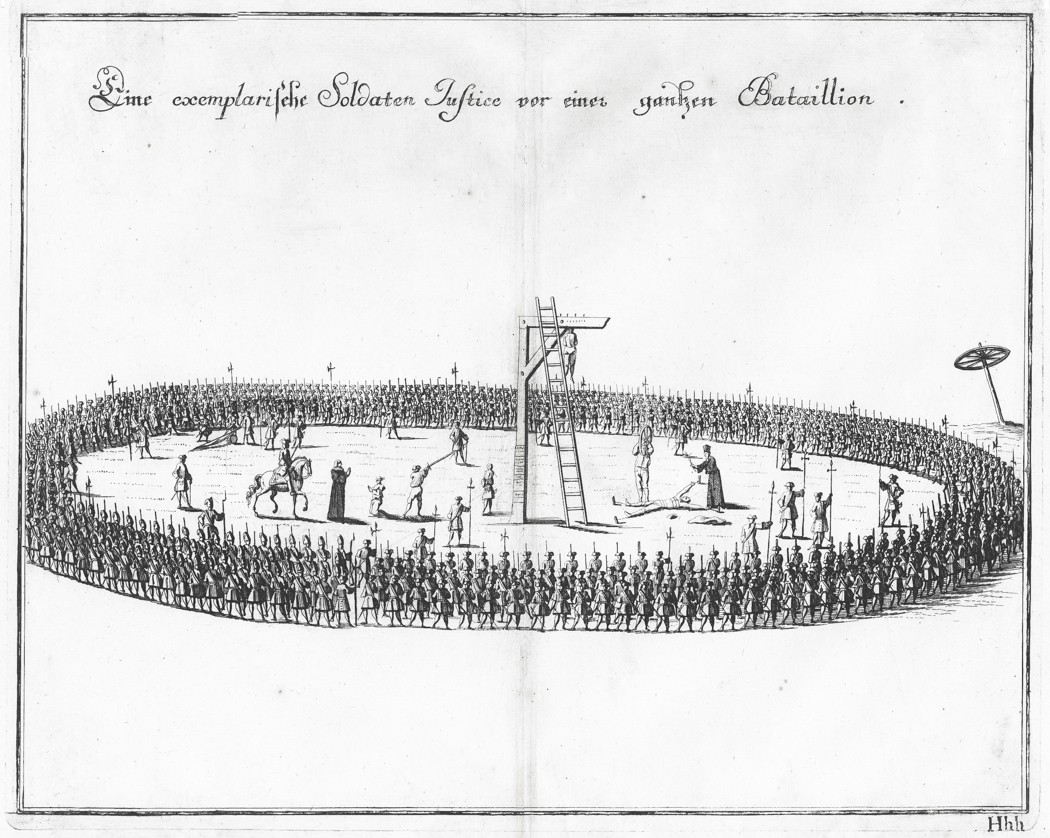 Eine exemplariſche Soldaten Juſtice vor einer gantzen Bataillion .
Hhh